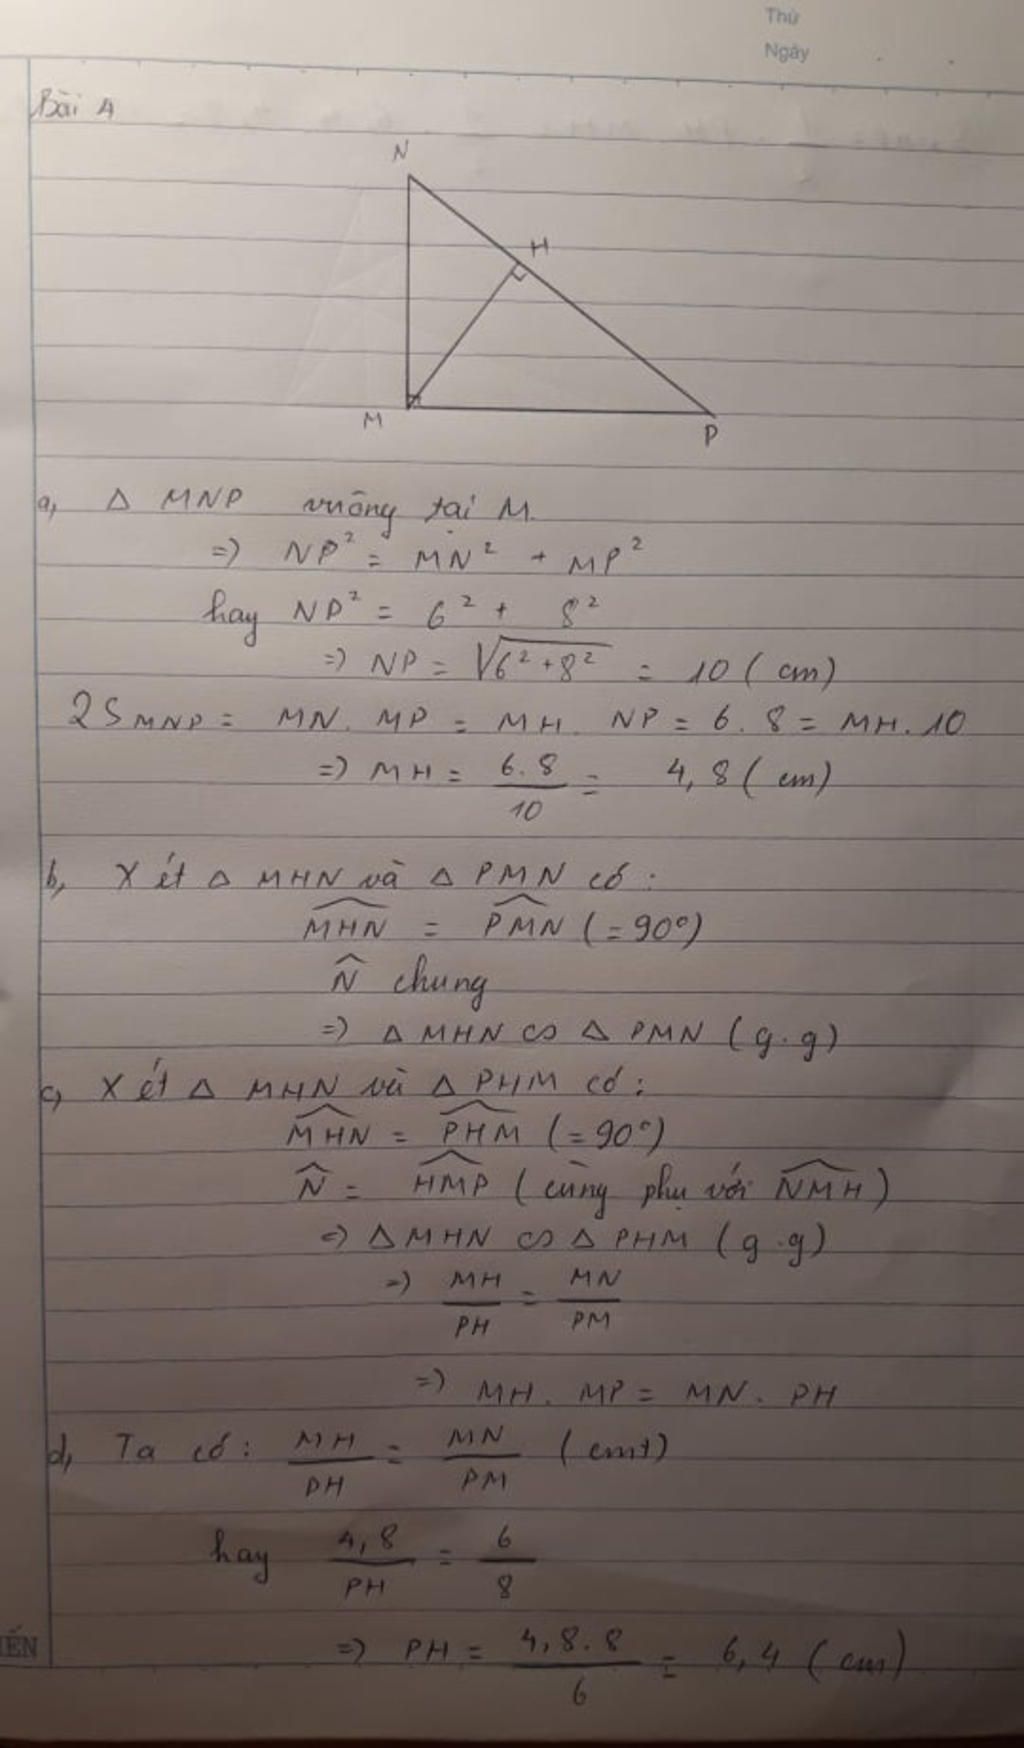 Thứ
Ngày
Bài 4
N
H
M
P
a, Δ MNP vuông tại M.
=> NP² = MN² + MP²
hay NP² = 6² + 8²
=> NP = √6²+8² = 10 (cm)
2S MNP = MN. MP = MH. NP = 6. 8 = MH. 10
=> MH = 6.8/10 = 4,8 (cm)
b, Xét Δ MHN và Δ PMN có:
MHN = PMN (= 90°)
N̂ chung
=> Δ MHN ∽ Δ PMN (g.g)
c, Xét Δ MHN và Δ PHM có:
MHN = PHM (= 90°)
N̂ = HMP (cùng phụ với NMH)
=> Δ MHN ∽ Δ PHM (g.g)
=> MH/PH = MN/PM
=> MH. MP = MN. PH
d, Ta có: MH/PH = MN/PM (cmt)
hay 4,8/PH = 6/8
=> PH = 4,8.8/6 = 6,4 (cm)
IẾN